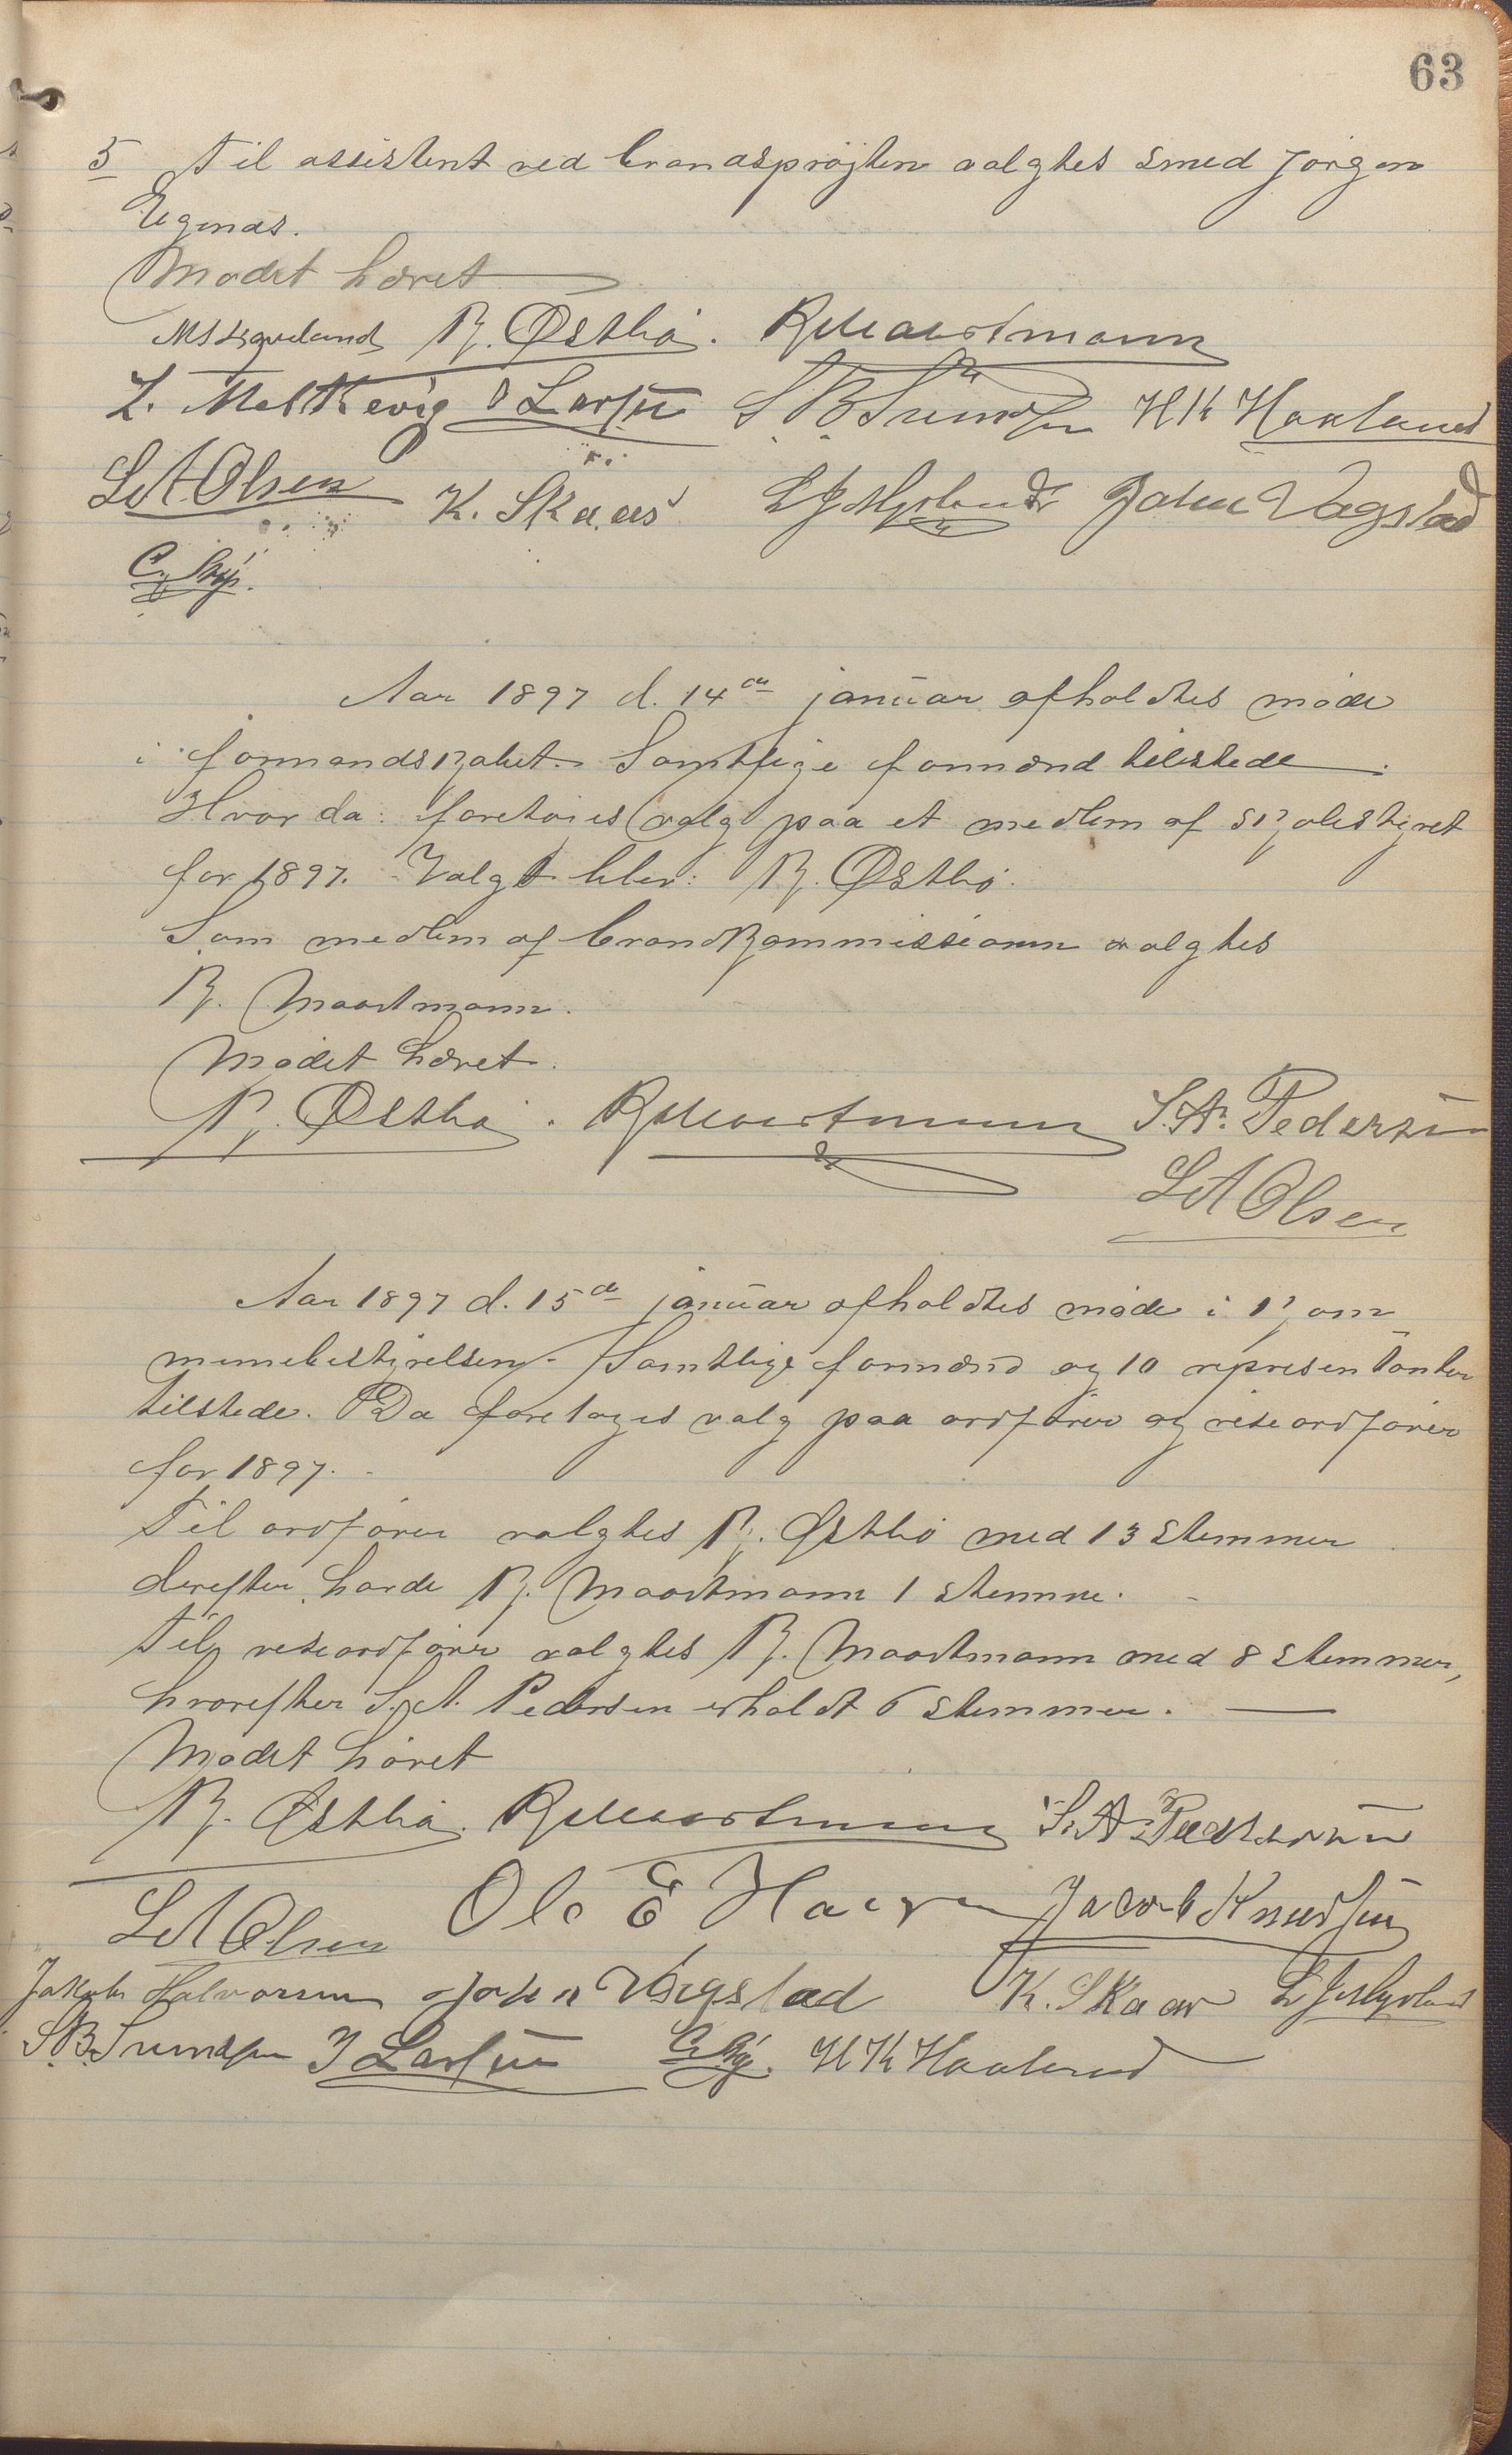 63
5 Til assistent ved brandsprøjten valgtes smed Jörgen
Egenæs.
Mødet hævet
R. Østbø. R Maartmann
L. Meltkevig J Larsen S B Svendsen H K Haaland
L A Olsen K. Skaar L J Myrland John Vagstad
Aar 1897 d. 14de januar afholdtes møde
i formandskabet. Samtlige formænd tilstede.
Hvor da: foretoges valg paa et medlem af skolestyret
for 1897. Valgt blev: R. Østbø.
Som medlem af brandkommissionen valgtes
R. Maartmann.
Mødet hævet.
R. Østbø. R Maartmann S. A. Pedersen
L A Olsen
Aar 1897 d. 15de januar afholdtes møde i kom
munebestyrelsen. Samtlige formænd og 10 repræsentanter
tilstede. Da foretoges valg paa ordfører og viseordfører
for 1897.
Til ordfører valgtes R. Østbø med 13 stemmer
derefter havde R. Maartmann 1 stemme.
Til viseordfører valgtes R. Maartmann med 8 stemmer,
hvorefter S. A. Pedersen erholdt 6 stemmer.
Mødet hævet
R. Østbø. R Maartmann S. A. Pedersen
L A Olsen Ole E Jacob Knudsen
Jakob Halvorsen John Vagstad K. Skaar L J Myrland
S. B. Svendsen J Larsen H K Haaland